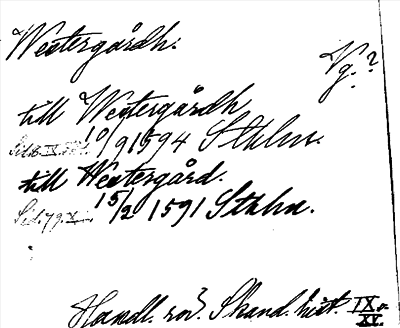 Westergårdh.
Vg.?
till Westergårdh
10/9 1594 Sthlm.
till Westergård.
15/2 1591 Sthlm.
Handl. rör. Skand. hist. IX o. XL.